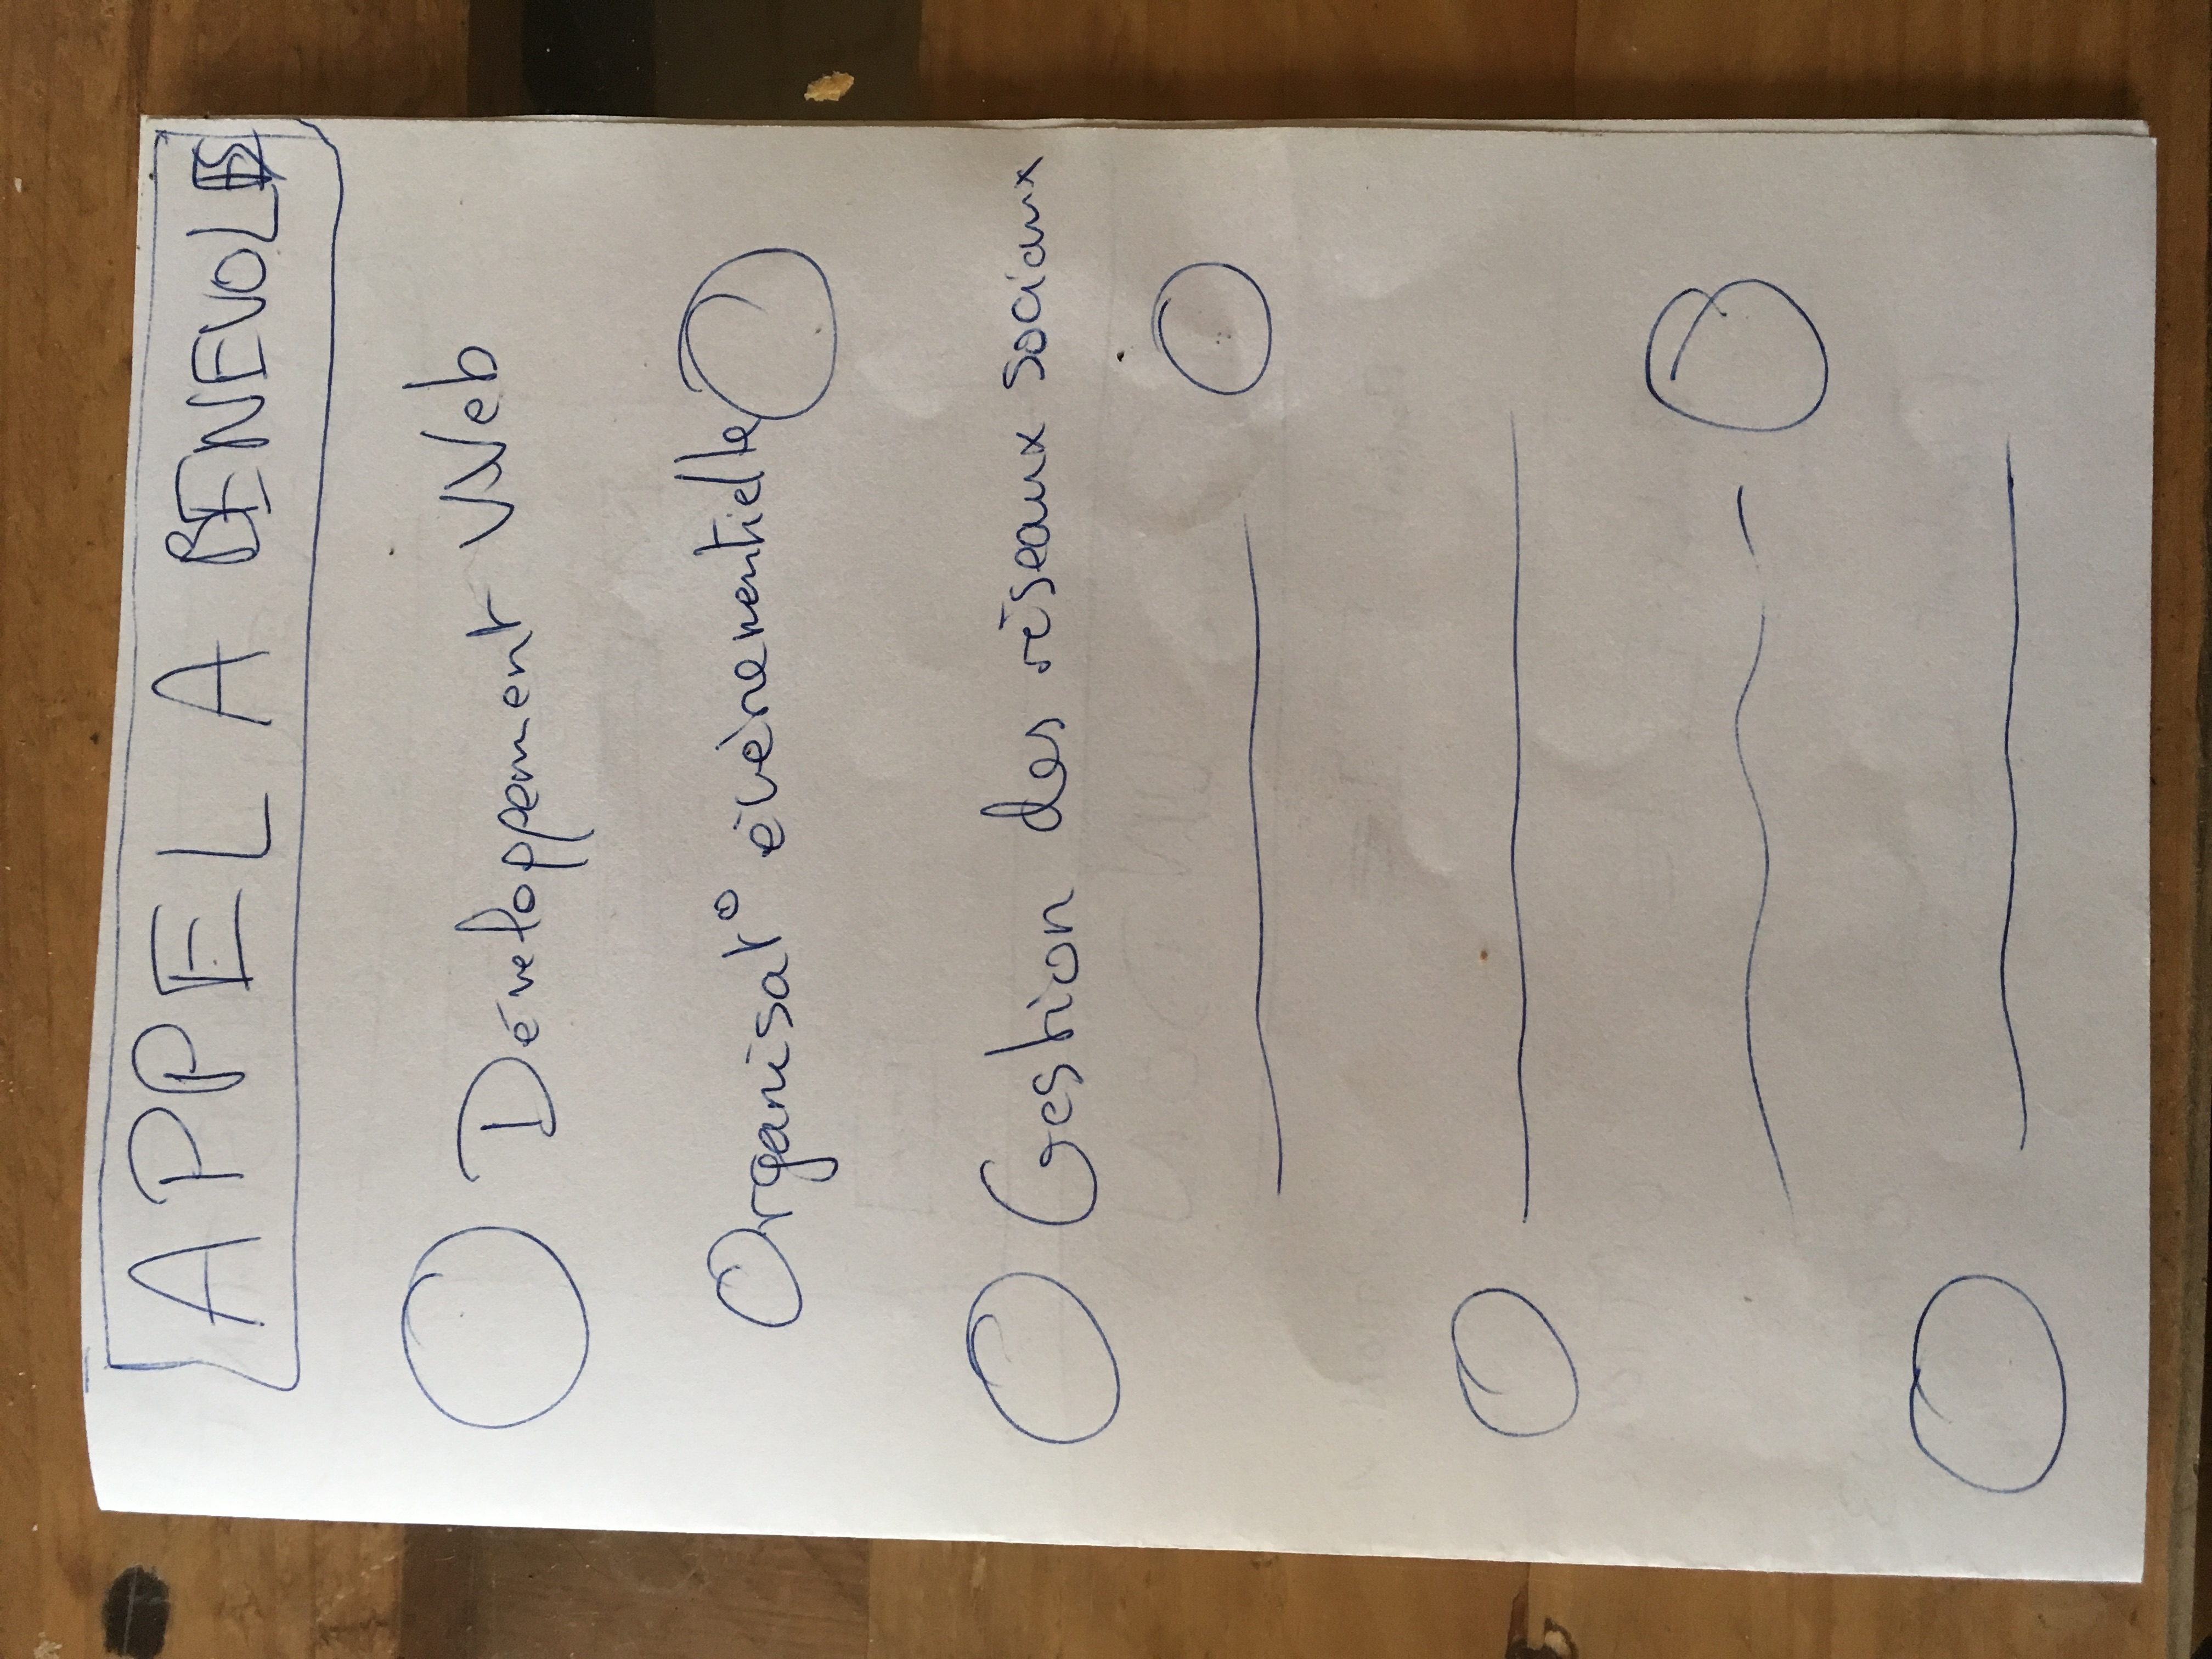 APPEL A BENEVOLES
Développement Web
Organisat° évènementielle
Gestion des réseaux sociaux